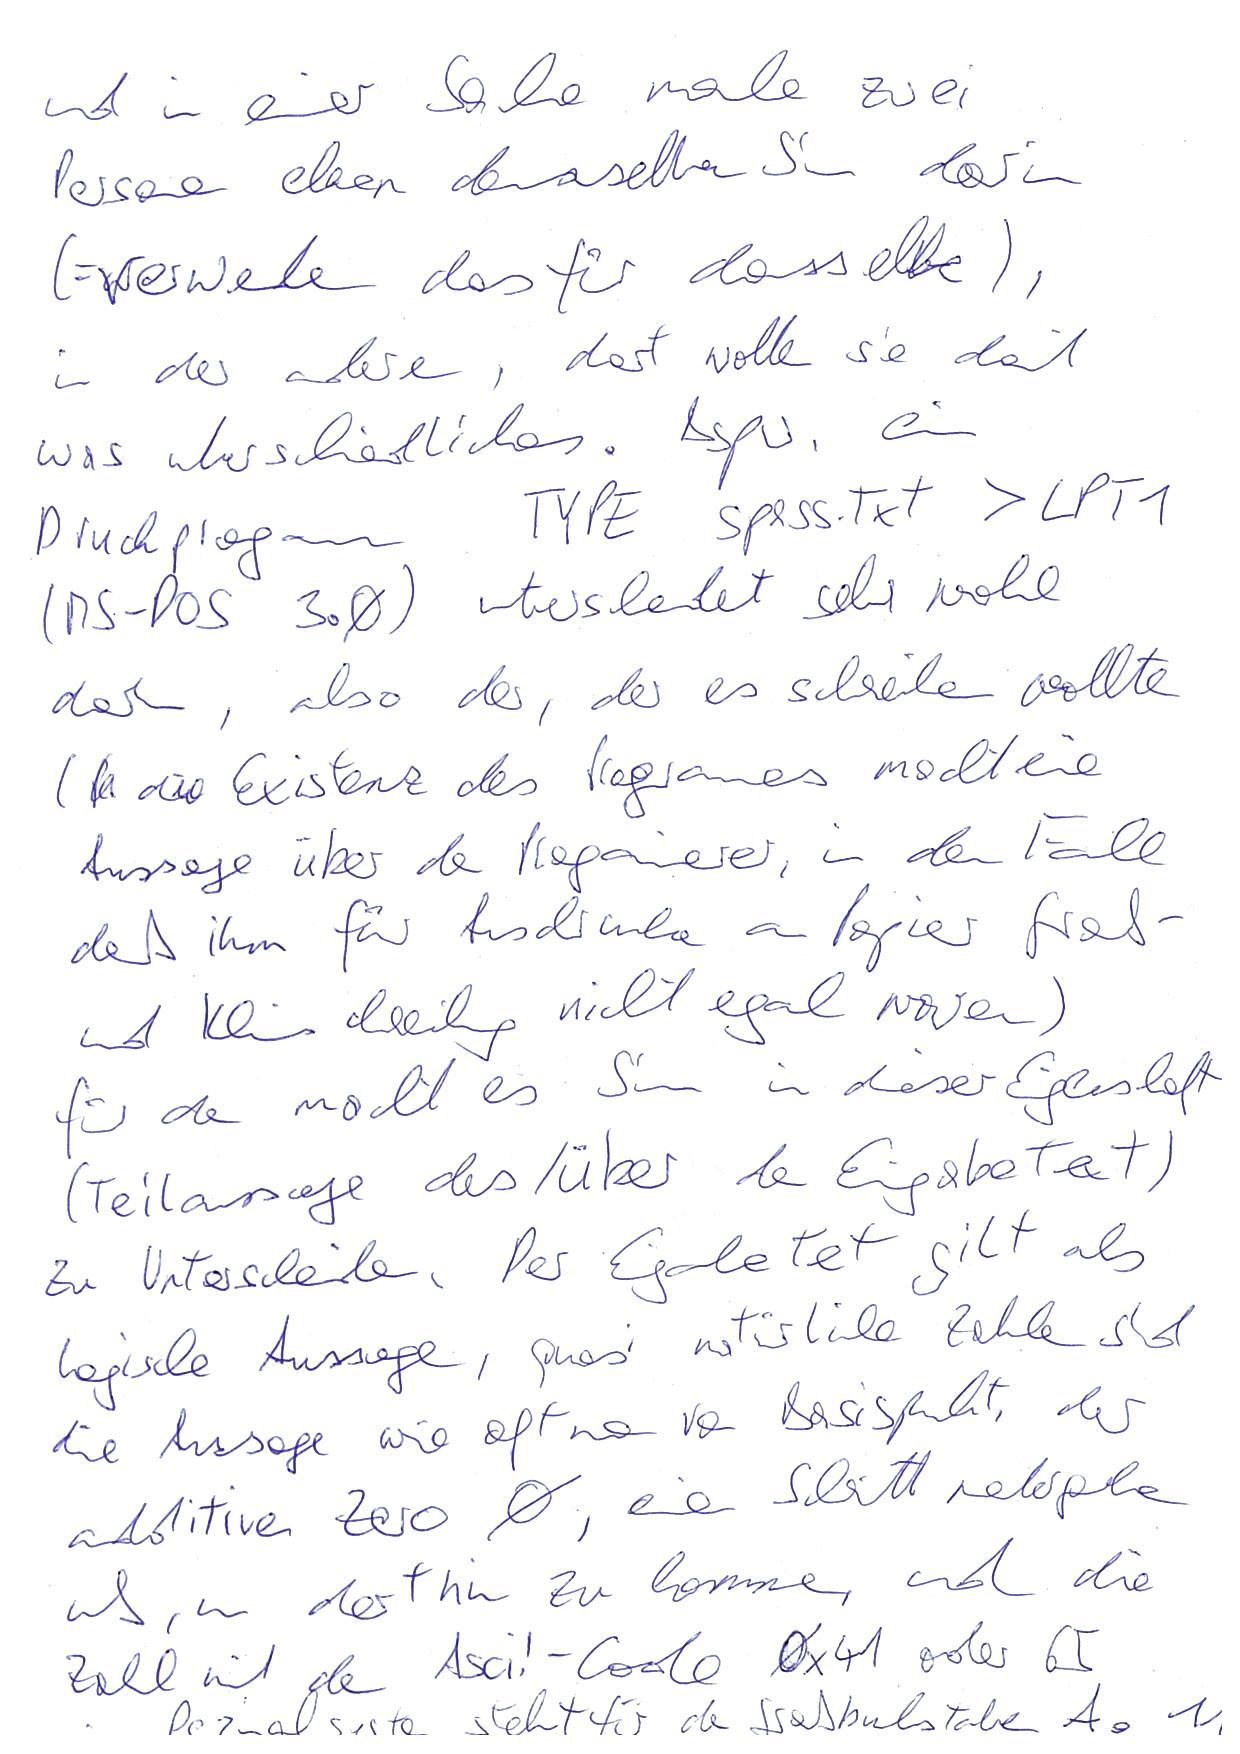 und in einer Sache mache zwei
Personen eben denselben Sinn darin
(=verwende das für dasselbe),
in der andere, dort wolle sie damit
was unterschiedliches. Bspw. ein
Druckprogramm TYPE spass.txt >LPT1
(MS-DOS 3.0) unterscheidet sehr wohl
darin, also der, der es schreiben wollte
(die Existenz des Programmes macht eine
Aussage über den Programmierer, in dem Falle
daß ihm für Ausdrucke an Papier Groß-
und Kleinschreibung nicht egal waren)
für den macht es Sinn in dieser Eigenschaft
(Teilaussage des/über
zu Unterscheiden. Der gilt als
logische Aussage, quasi natürliche Zahlen sind
die Aussage wie oft man von Basispunkt, der
additiven Zero 0, einen Schritt
muß, um dorthin zu kommen, und die
Zahl mit dem Ascii-Code 0x41 oder 65
Dezimal steht für den Großbuchstaben A.